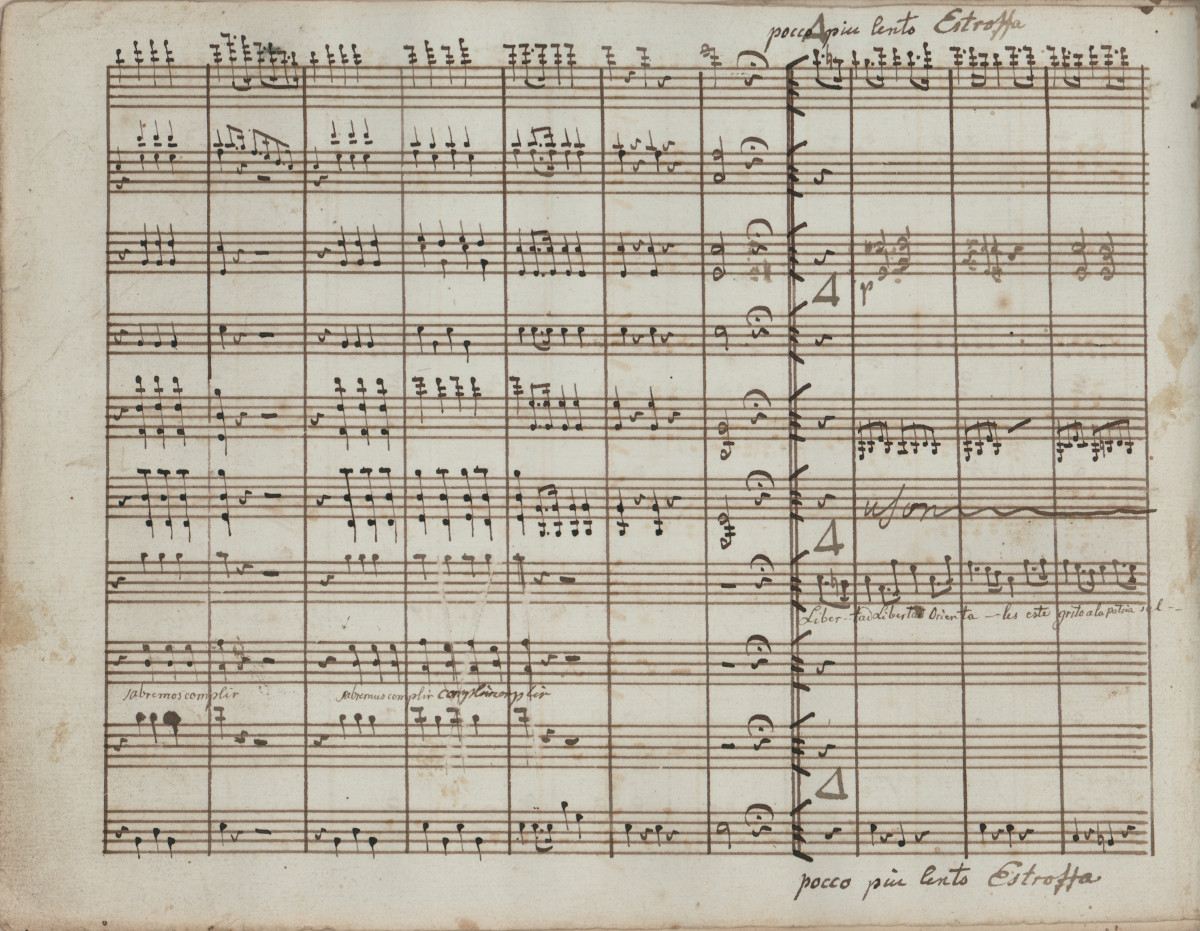 pocco piu lento Estroffa
4
4
p
uson
4
Liber-tad Libertad Orienta-les este grito a la patria sal-
sabremos complir sabremus complir complir complir
4
pocco piu lento Estroffa